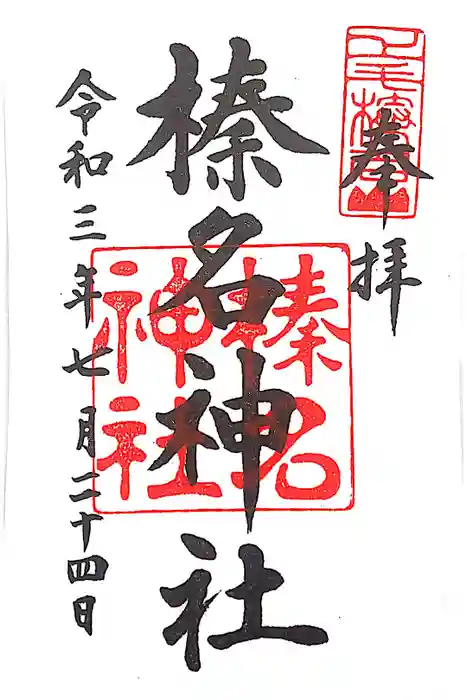 奉拝
榛名神社
令和三年七月二十四日
榛名
神社